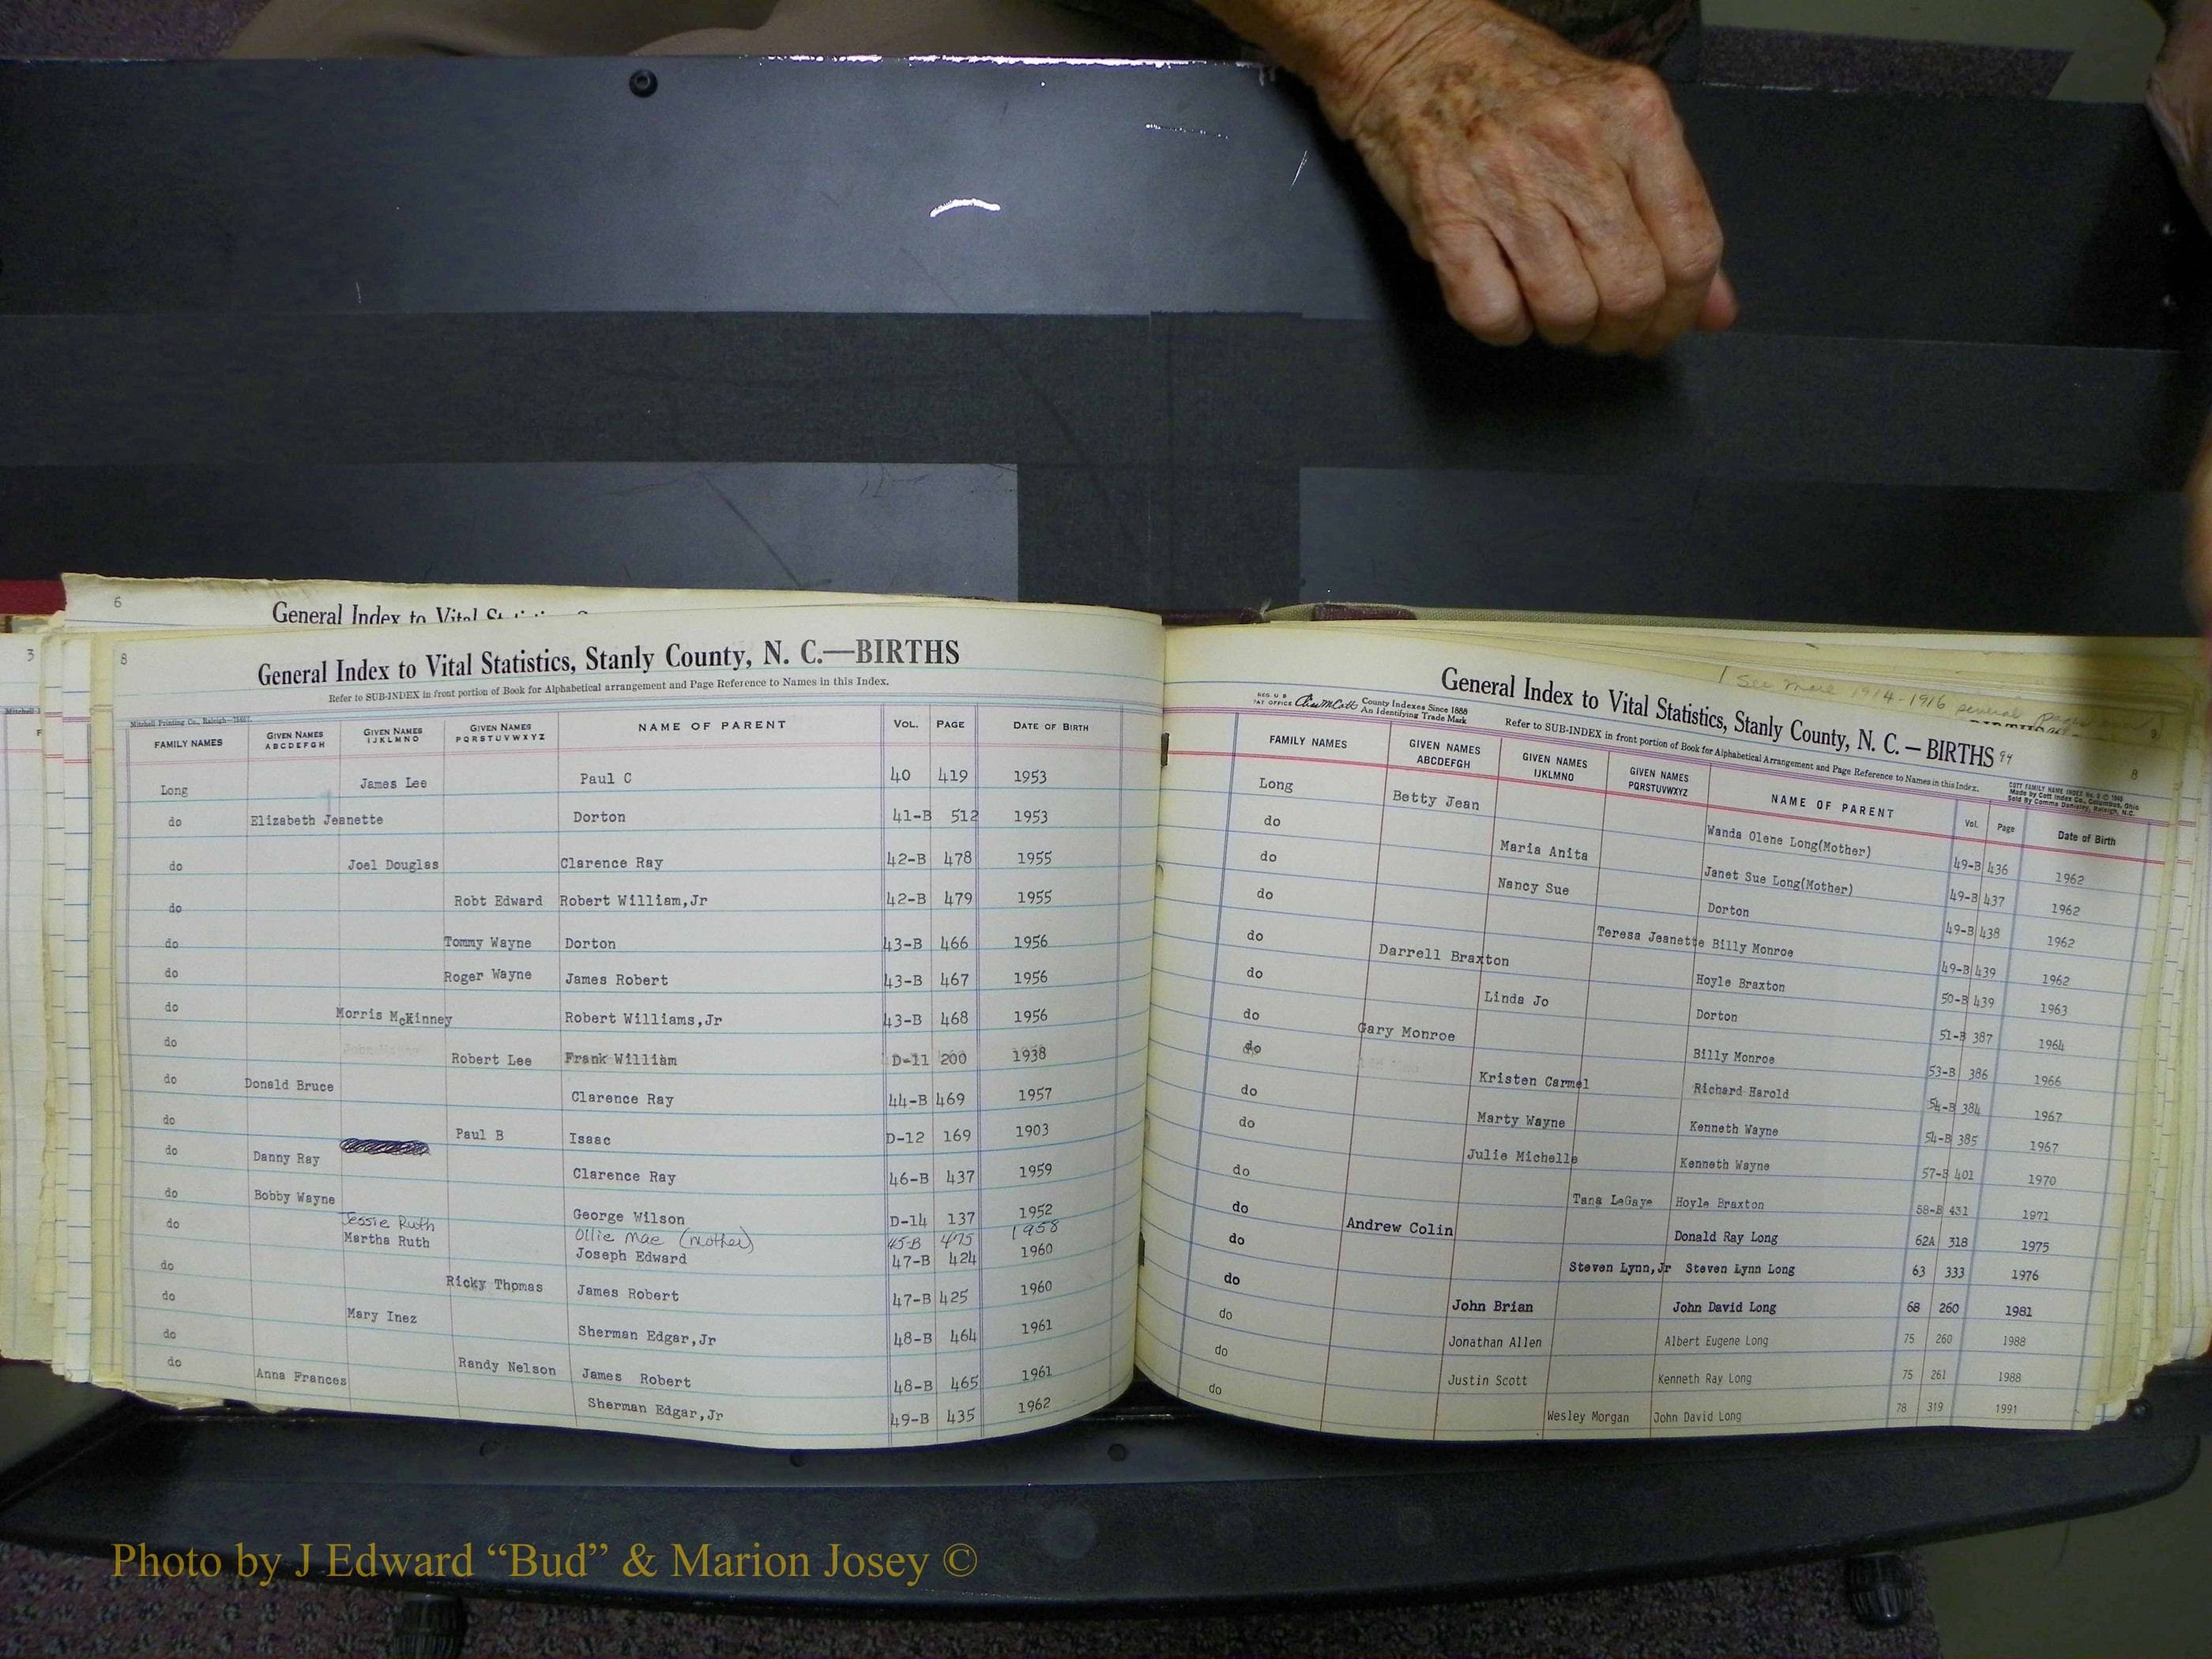 6
General Index to Vital
3
8
General Index to Vital Statistics, Stanly County, N. C.—BIRTHS
Refer to SUB-INDEX in front portion of Book for Alphabetical arrangement and Page Reference to Names in this Index.
Mitchell Printing Co., Raleigh
FAMILY NAMES GIVEN NAMES ABCDEFGH GIVEN NAMES IJKLMNO GIVEN NAMES PQRSTUVWXYZ NAME OF PARENT VOL. PAGE DATE OF BIRTH
Long James Lee Paul C 40 419 1953
do Elizabeth Jeanette Dorton 41-B 512 1953
do Joel Douglas Clarence Ray 42-B 478 1955
do Robt Edward Robert William,Jr 42-B 479 1955
do Tommy Wayne Dorton 43-B 466 1956
do Roger Wayne James Robert 43-B 467 1956
do Morris McKinney Robert Williams,Jr 43-B 468 1956
do Robert Lee Frank William D-11 200 1938
do Donald Bruce Clarence Ray 44-B 469 1957
do Paul B Isaac D-12 169 1903
do Danny Ray Clarence Ray 46-B 437 1959
do Bobby Wayne George Wilson D-14 137 1952
Jessie Ruth Ollie Mae (mother) 45-B 475 1958
do Martha Ruth Joseph Edward 47-B 424 1960
do Ricky Thomas James Robert 47-B 425 1960
do Mary Inez Sherman Edgar,Jr 48-B 464 1961
do Randy Nelson James Robert 48-B 465 1961
do Anna Frances Sherman Edgar,Jr 49-B 435 1962
See 1914-1916 several pages
General Index to Vital Statistics, Stanly County, N. C. — BIRTHS 94
County Indexes Since 1888
An Identifying Trade Mark
Refer to SUB-INDEX in front portion of Book for Alphabetical Arrangement and Page Reference to Names in this Index.
8
9
FAMILY NAMES GIVEN NAMES ABCDEFGH GIVEN NAMES IJKLMNO GIVEN NAMES PQRSTUVWXYZ NAME OF PARENT Vol. Page Date of Birth
Long Betty Jean Wanda Olene Long(Mother) 49-B 436 1962
do Maria Anita Janet Sue Long(Mother) 49-B 437 1962
do Nancy Sue Dorton 49-B 438 1962
do Teresa Jeanette Billy Monroe 49-B 439 1962
do Darrell Braxton Hoyle Braxton 50-B 439 1963
do Linda Jo Dorton 51-B 387 1964
do Gary Monroe Billy Monroe 53-B 386 1966
do Kristen Carmel Richard Harold 54-B 384 1967
do Marty Wayne Kenneth Wayne 54-B 385 1967
do Julie Michelle Kenneth Wayne 57-B 401 1970
do Tana LaGaye Hoyle Braxton 58-B 431 1971
do Andrew Colin Donald Ray Long 62A 318 1975
do Steven Lynn,Jr Steven Lynn Long 63 333 1976
do John Brian John David Long 68 260 1981
do Jonathan Allen Albert Eugene Long 75 260 1988
do Justin Scott Kenneth Ray Long 75 261 1988
do Wesley Morgan John David Long 78 319 1991
Photo by J Edward “Bud” & Marion Josey ©